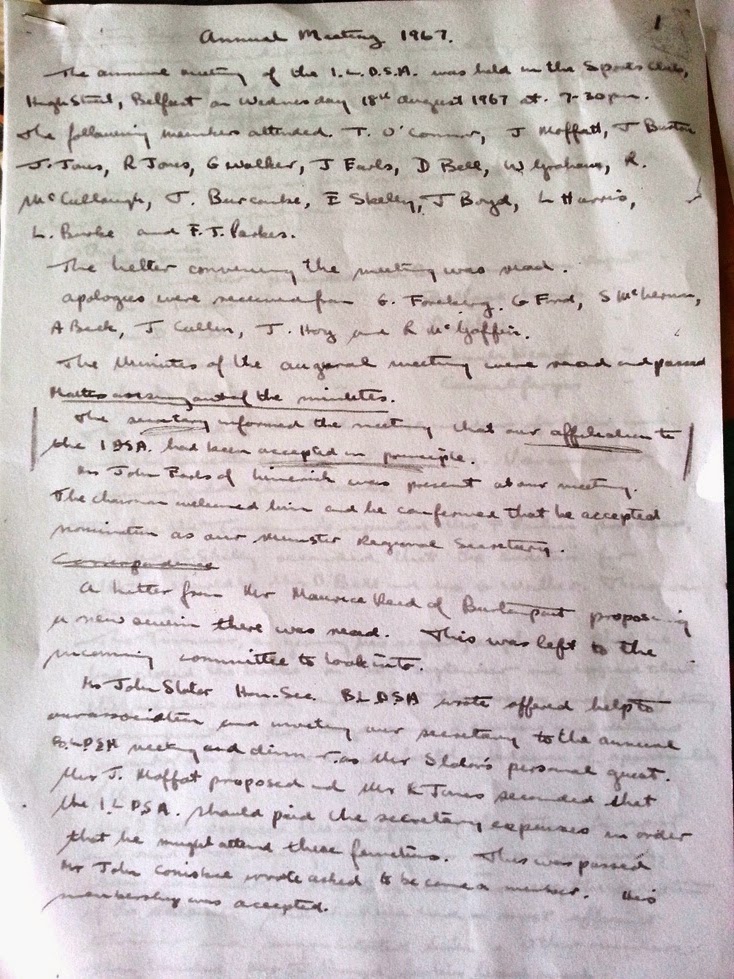 1
Annual Meeting 1967.
The annual meeting of the I.L.D.S.A. was held in the Sports Club,
High Street, Belfast on Wednesday 18th august 1967 at 7-30pm.
The following members attended. T. O'Connor, J Moffatt, J Buston
J. Jones, R Jones, G Walker, J Earls, D Bell, W. Graham, R.
McCullaugh, J. Burcombe, E Skelly, J Boyd, L Harris,
L. Burke and F. J. Parkes.
The letter convening the meeting was read.
apologies were received from G. G Ford, S
A Beck, J Cullin, J. Hoy and R McGaffin.
The Minutes of the augural meeting were read and passed
Matters arising out of the minutes.
The secretary informed the meeting that our affiliation to
the I DSA. had been accepted in principle.
Mr John Earls of Limerick was present at our meeting.
The chairman welcomed him and he confirmed that he accepted
nomination as our Munster Regional Secretary.
Correspondence
A letter from Mr Maurice of Burtonport proposing
a new swim there was read. This was left to the
incoming committee to look into.
Mr John Slater Hon. Sec. BLDSA wrote offered help to
our association and inviting our secretary to the annual
BLDSA meeting and dinner as Mr Slater's personal guest.
Mr J. Moffat proposed and Mr R Jones seconded that
the I.L DSA. should paid the secretary expenses in order
that he might attend these functions. This was passed
Mr John wrote asked to be came a member. His
membership was accepted.